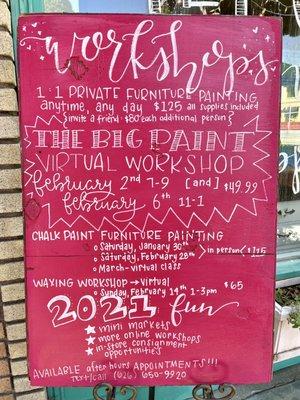 workshops
1:1 PRIVATE FURNITURE PAINTING
anytime, any day $125 all supplies included
{invite a friend · $80 each additional person}
THE BIG PAINT
VIRTUAL WORKSHOP
february 2nd 7-9 [and] $49.99
february 6th 11-1
CHALK PAINT FURNITURE PAINTING
Saturday, January 30th
Saturday, February 28th
in person
March-virtual class
WAXING WORKSHOP → Virtual
Sunday, February 14th 1-3pm $65
2021 fun
★ mini markets
★ more online workshops
★ in-store consignment
opportunities
AVAILABLE after hours APPOINTMENTS!!!
Text/call (626) 650-9920